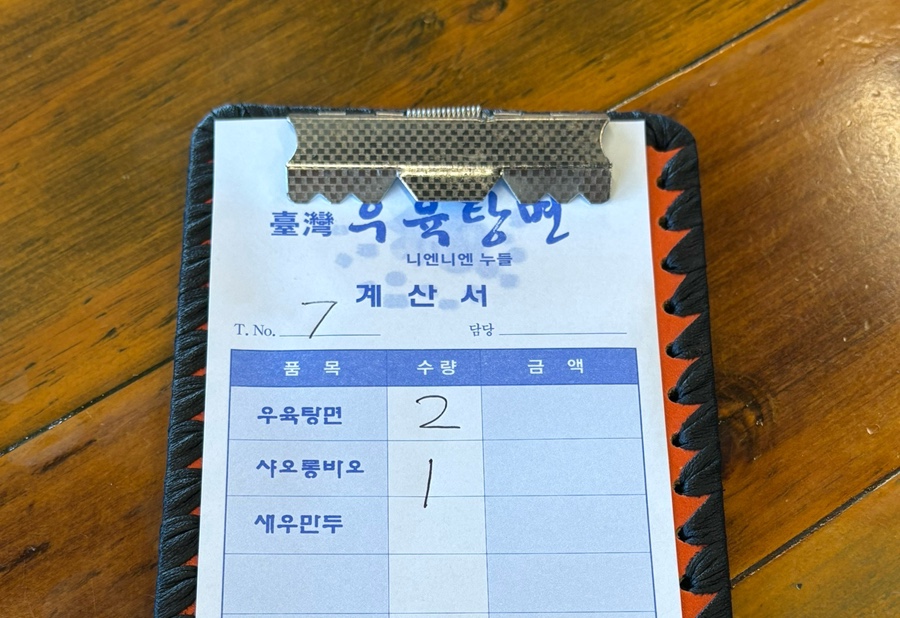 臺灣 우육탕면
니엔니엔 누들
계산서
T. No. 7 담당
품목 수량 금액
우육탕면 2
샤오롱바오 1
새우만두